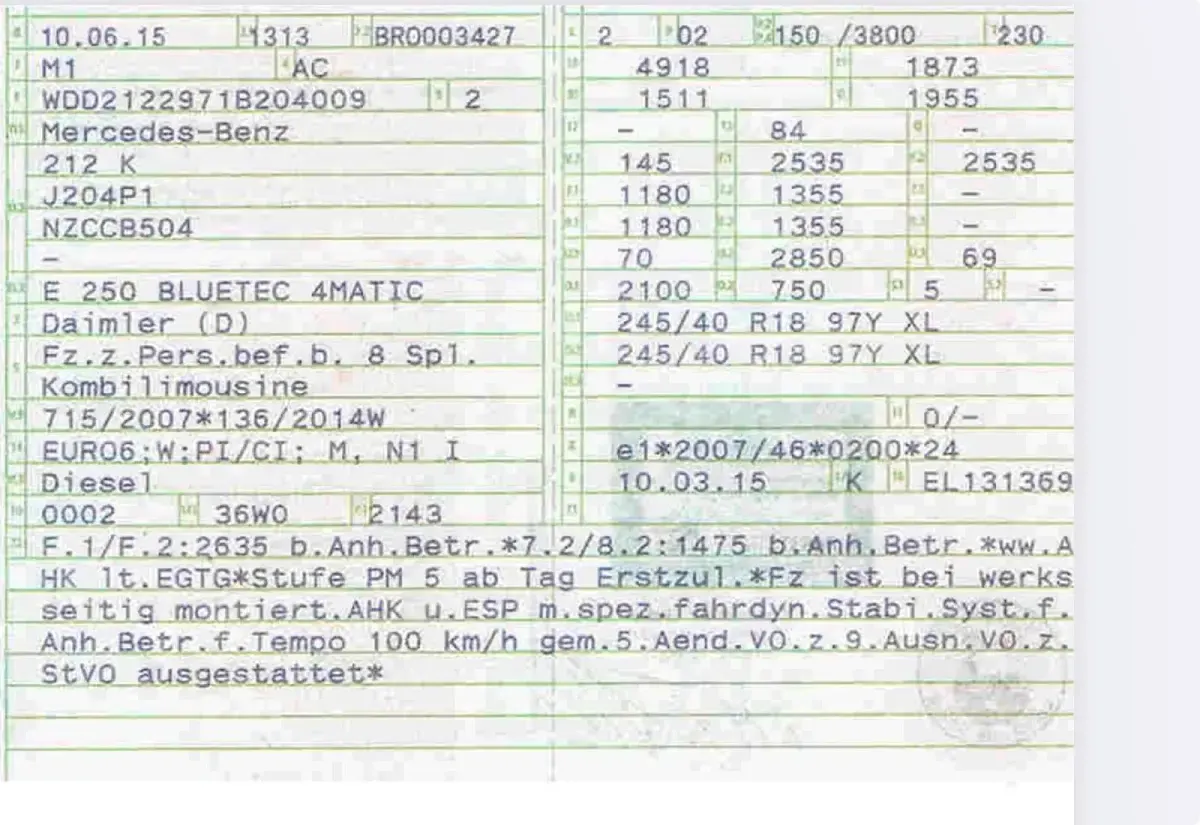 10.06.15 1313 BR0003427
M1 AC
WDD2122971B204009 2
Mercedes-Benz
212 K
J204P1
NZCCB504
–
E 250 BLUETEC 4MATIC
Daimler (D)
Fz.z.Pers.bef.b. 8 Spl.
Kombilimousine
715/2007*136/2014W
EURO6;W;PI/CI; M, N1 I
Diesel
0002 36W0 2143
2 02 150 /3800 230
4918 1873
1511 1955
– 84 –
145 2535 2535
1180 1355 –
1180 1355 –
70 2850 69
2100 750 5 –
245/40 R18 97Y XL
245/40 R18 97Y XL
–
0/–
e1*2007/46*0200*24
10.03.15 K EL131369
F.1/F.2:2635 b.Anh.Betr.*7.2/8.2:1475 b.Anh.Betr.*ww.A
HK lt.EGTG*Stufe PM 5 ab Tag Erstzul.*Fz ist bei werks
seitig montiert.AHK u.ESP m.spez.fahrdyn.Stabi.Syst.f.
Anh.Betr.f.Tempo 100 km/h gem.5.Aend.VO.z.9.Ausn.VO.z.
StVO ausgestattet*